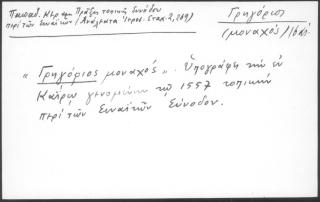 Παπαδ. Κερ αμ Πράξις τοπικής Συνόδου
περί των Σιναϊτών (Ανάλεκτα Ιεροσ. Σταχ. 2, 249)
Γρηγόριος
(μοναχός) 16 αἰ.
« Γρηγόριος μοναχός ». Ὑπογράφει τὴν ἐν
Καΐρῳ γενομένην τῷ 1557 τοπικὴν
περί τῶν Σιναϊτῶν Σύνοδον.